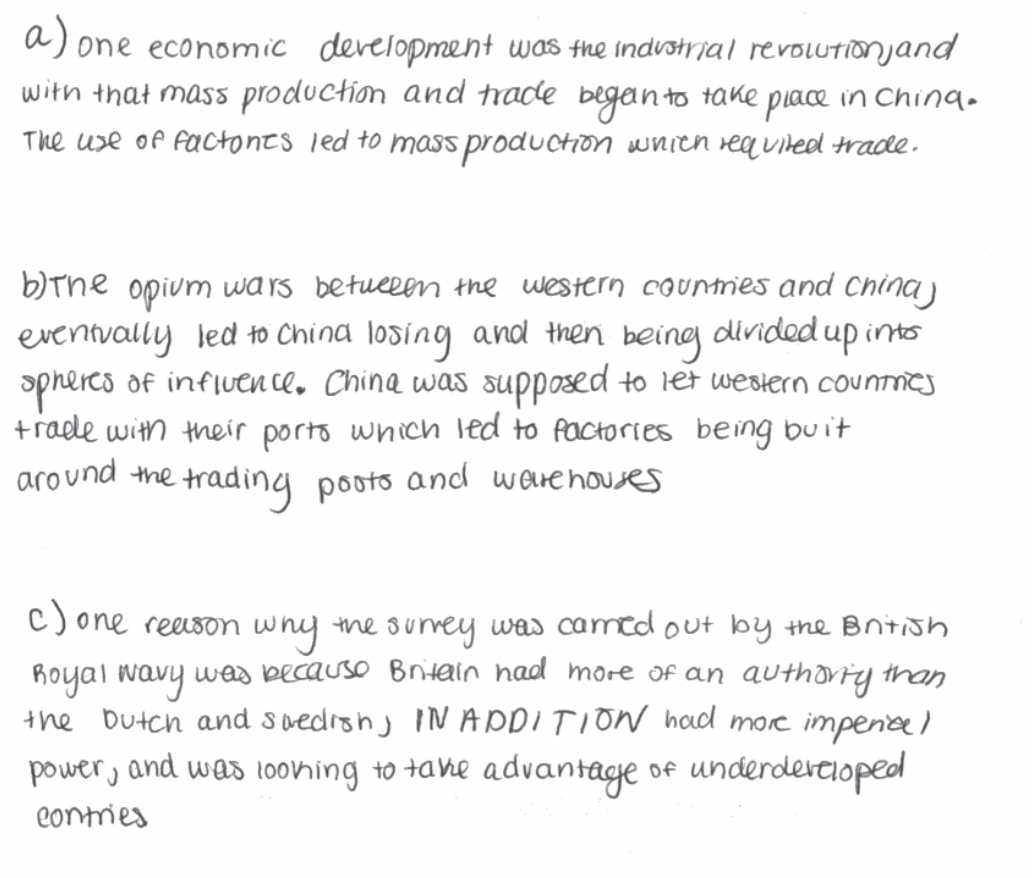 a) one economic development was the industrial revolution, and
with that mass production and trade began to take place in China.
The use of factories led to mass production which required trade.
b) The opium wars betweeen the western countries and China,
eventually led to China losing and then being divided up into
spheres of influence. China was supposed to let western countries
trade with their ports which led to factories being buit
around the trading poots and warehouses
c) one reason why the survey was carried out by the British
Royal Navy was because Britain had more of an authority than
the Dutch and Swedish, IN ADDITION had more imperial
power, and was looking to take advantage of underdeveloped
contries